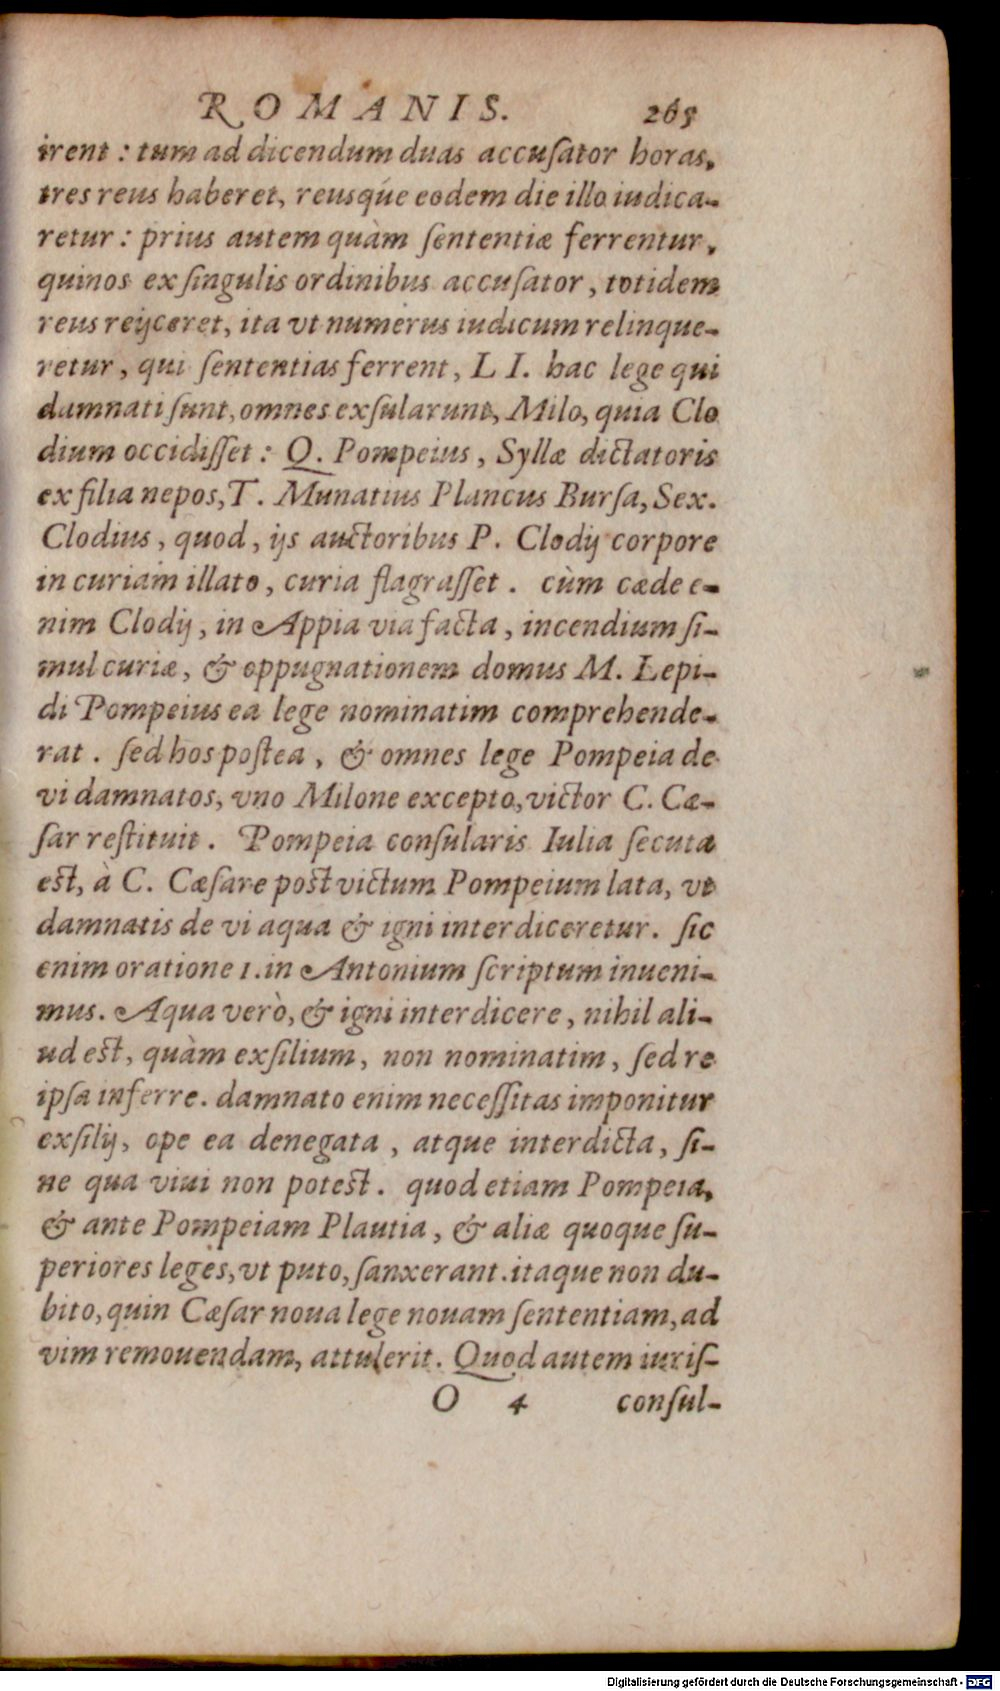 ROMANIS. 265
irent : tum ad dicendum duas accuſator horas,
tres reus haberet, reusq́ue eodem die illo iudica-
retur : prius autem quàm ſententiæ ferrentur,
quinos ex ſingulis ordinibus accuſator, totidem
reus reijceret, ita vt numerus iudicum relinque-
retur, qui ſententias ferrent, L I. hac lege qui
damnati ſunt, omnes exſularunt, Milo, quia Clo
dium occidiſſet : Q. Pompeius, Syllæ dictatoris
ex filia nepos, T. Munatius Plancus Burſa, Sex.
Clodius, quod, ijs auctoribus P. Clodij corpore
in curiam illato, curia flagraſſet. cùm cæde e-
nim Clodij, in Appia via facta, incendium ſi-
mul curiæ, & oppugnationem domus M. Lepi-
di Pompeius ea lege nominatim comprehende-
rat. ſed hos poſtea, & omnes lege Pompeia de
vi damnatos, vno Milone excepto, victor C. Cæ-
ſar reſtituit. Pompeia conſularis Iulia ſecuta
eſt, à C. Cæſare poſt victum Pompeium lata, vt
damnatis de vi aqua & igni interdiceretur. ſic
enim oratione 1. in Antonium ſcriptum inueni-
mus. Aqua verò, & igni interdicere, nihil ali-
ud eſt, quàm exſilium, non nominatim, ſed re
ipſa inferre. damnato enim neceſſitas imponitur
exſilij, ope ea denegata, atque interdicta, ſi-
ne qua viui non poteſt. quod etiam Pompeia,
& ante Pompeiam Plautia, & aliæ quoque ſu-
periores leges, vt puto, ſanxerant. itaque non du-
bito, quin Cæſar noua lege nouam ſententiam, ad
vim remouendam, attulerit. Quod autem iuriſ-
O 4 conſul-
Digitalisierung gefördert durch die Deutsche Forschungsgemeinschaft - DFG